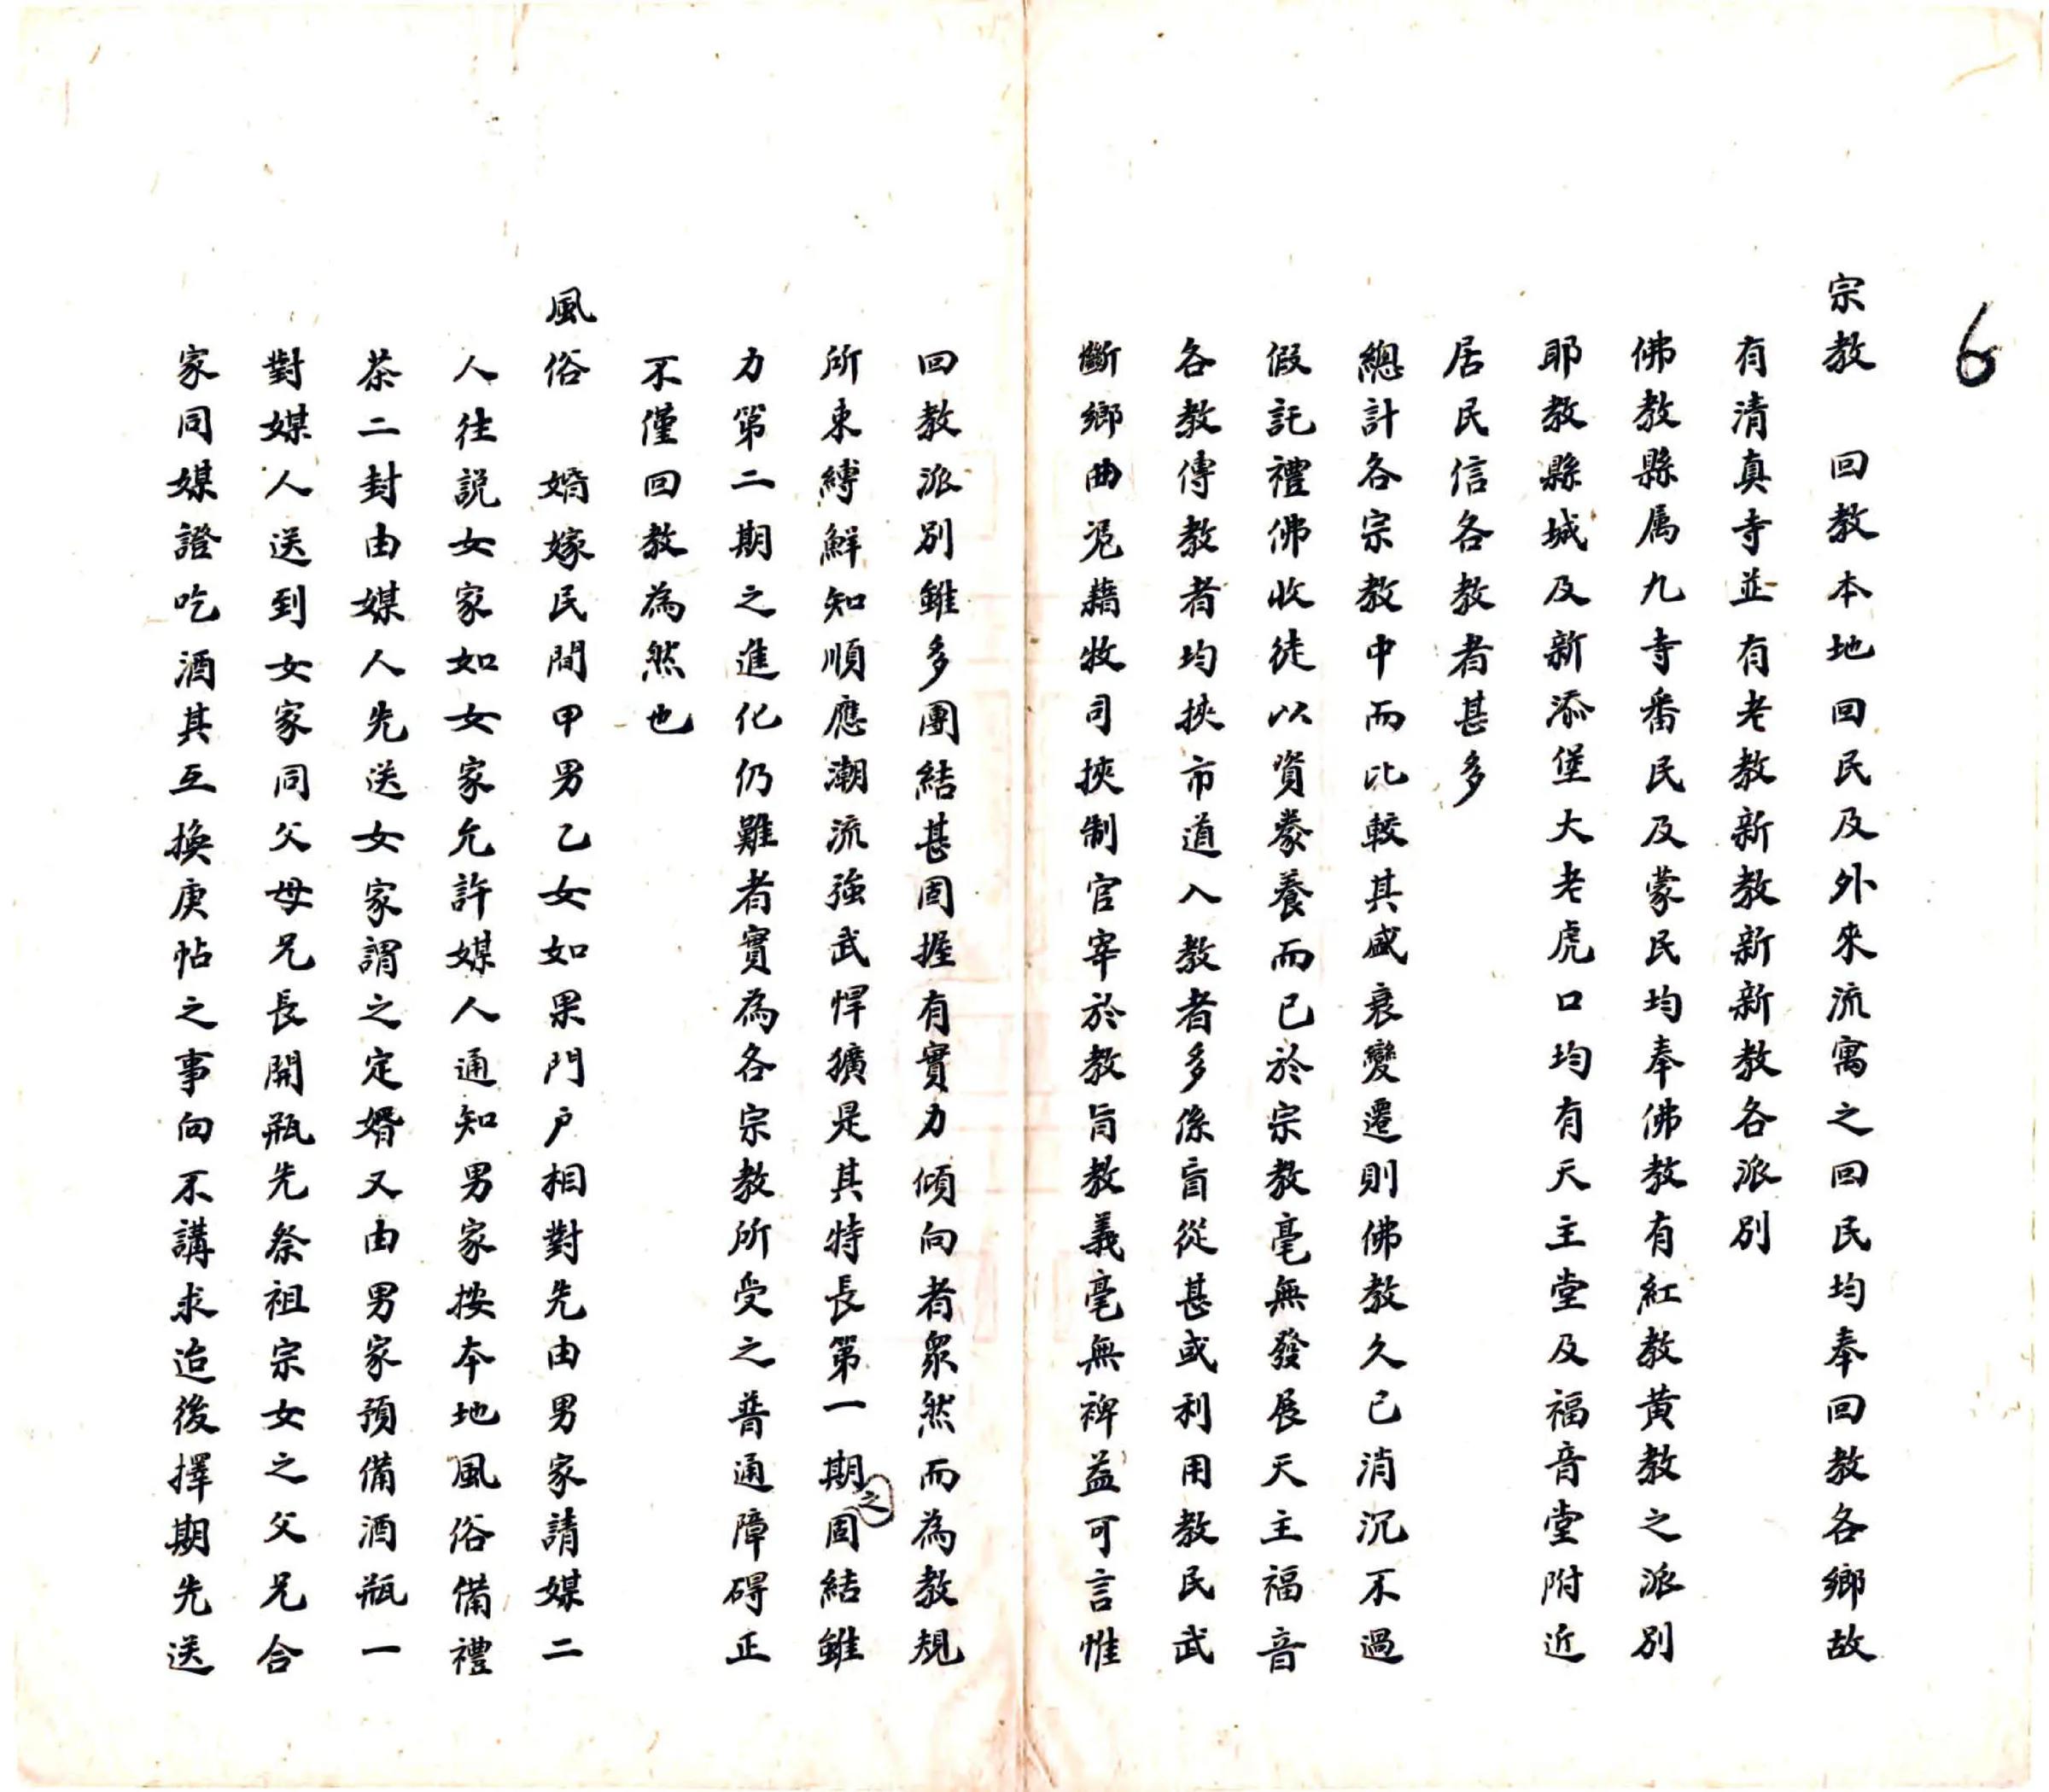 6
宗教　回教本地回民及外來流寓之回民均奉回教各鄉故
有清真寺並有老教新教新新教各派別
佛教縣属九寺番民及蒙民均奉佛教有紅教黄教之派別
耶教縣城及新添堡大老虎口均有天主堂及福音堂附近
居民信各教者甚多
總計各宗教中而比較其盛衰變遷則佛教久已消沉不過
假託禮佛收徒以資豢養而已於宗教毫無發展天主福音
各教傳教者均挾市道入教者多係盲從甚或利用教民武
斷鄉曲凭藉牧司挾制官宰於教旨教義毫無裨益可言惟
回教派別雖多團結甚固握有實力傾向者衆然而為教規
所束縛鮮知順應潮流強武悍獷是其特長第一期之固結雖
力第二期之進化仍難者實為各宗教所受之普通障碍正
不僅回教為然也
風俗　婚嫁民間甲男乙女如果門户相對先由男家請媒二
人往説女家如女家允許媒人通知男家按本地風俗備禮
茶二封由媒人先送女家謂之定婚又由男家預備酒瓶一
對媒人送到女家同父母兄長開瓶先祭祖宗女之父兄合
家同媒證吃酒其互換庚帖之事向不講求迨後擇期先送